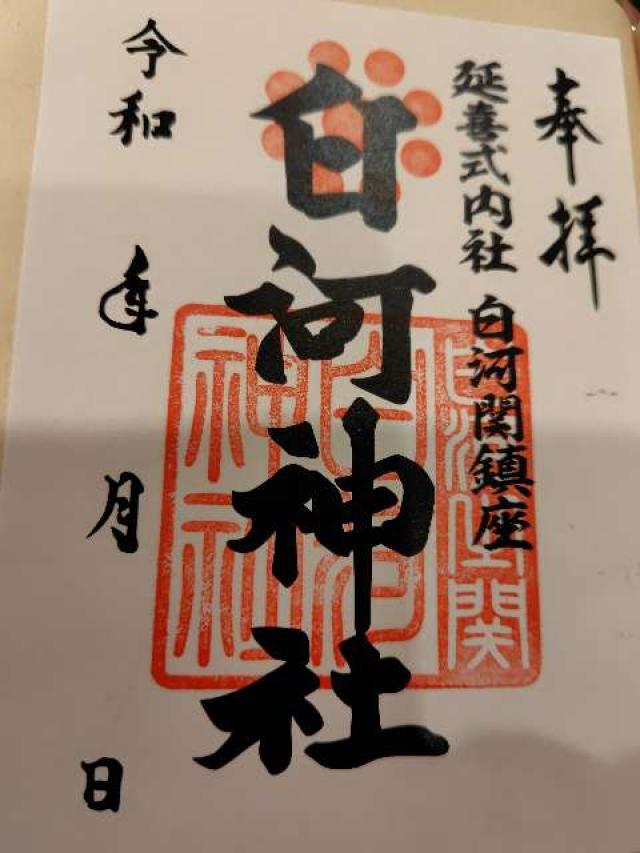 奉拝
延喜式内社 白河関鎮座
白河神社
令和 年 月 日
白河関
白河
神社